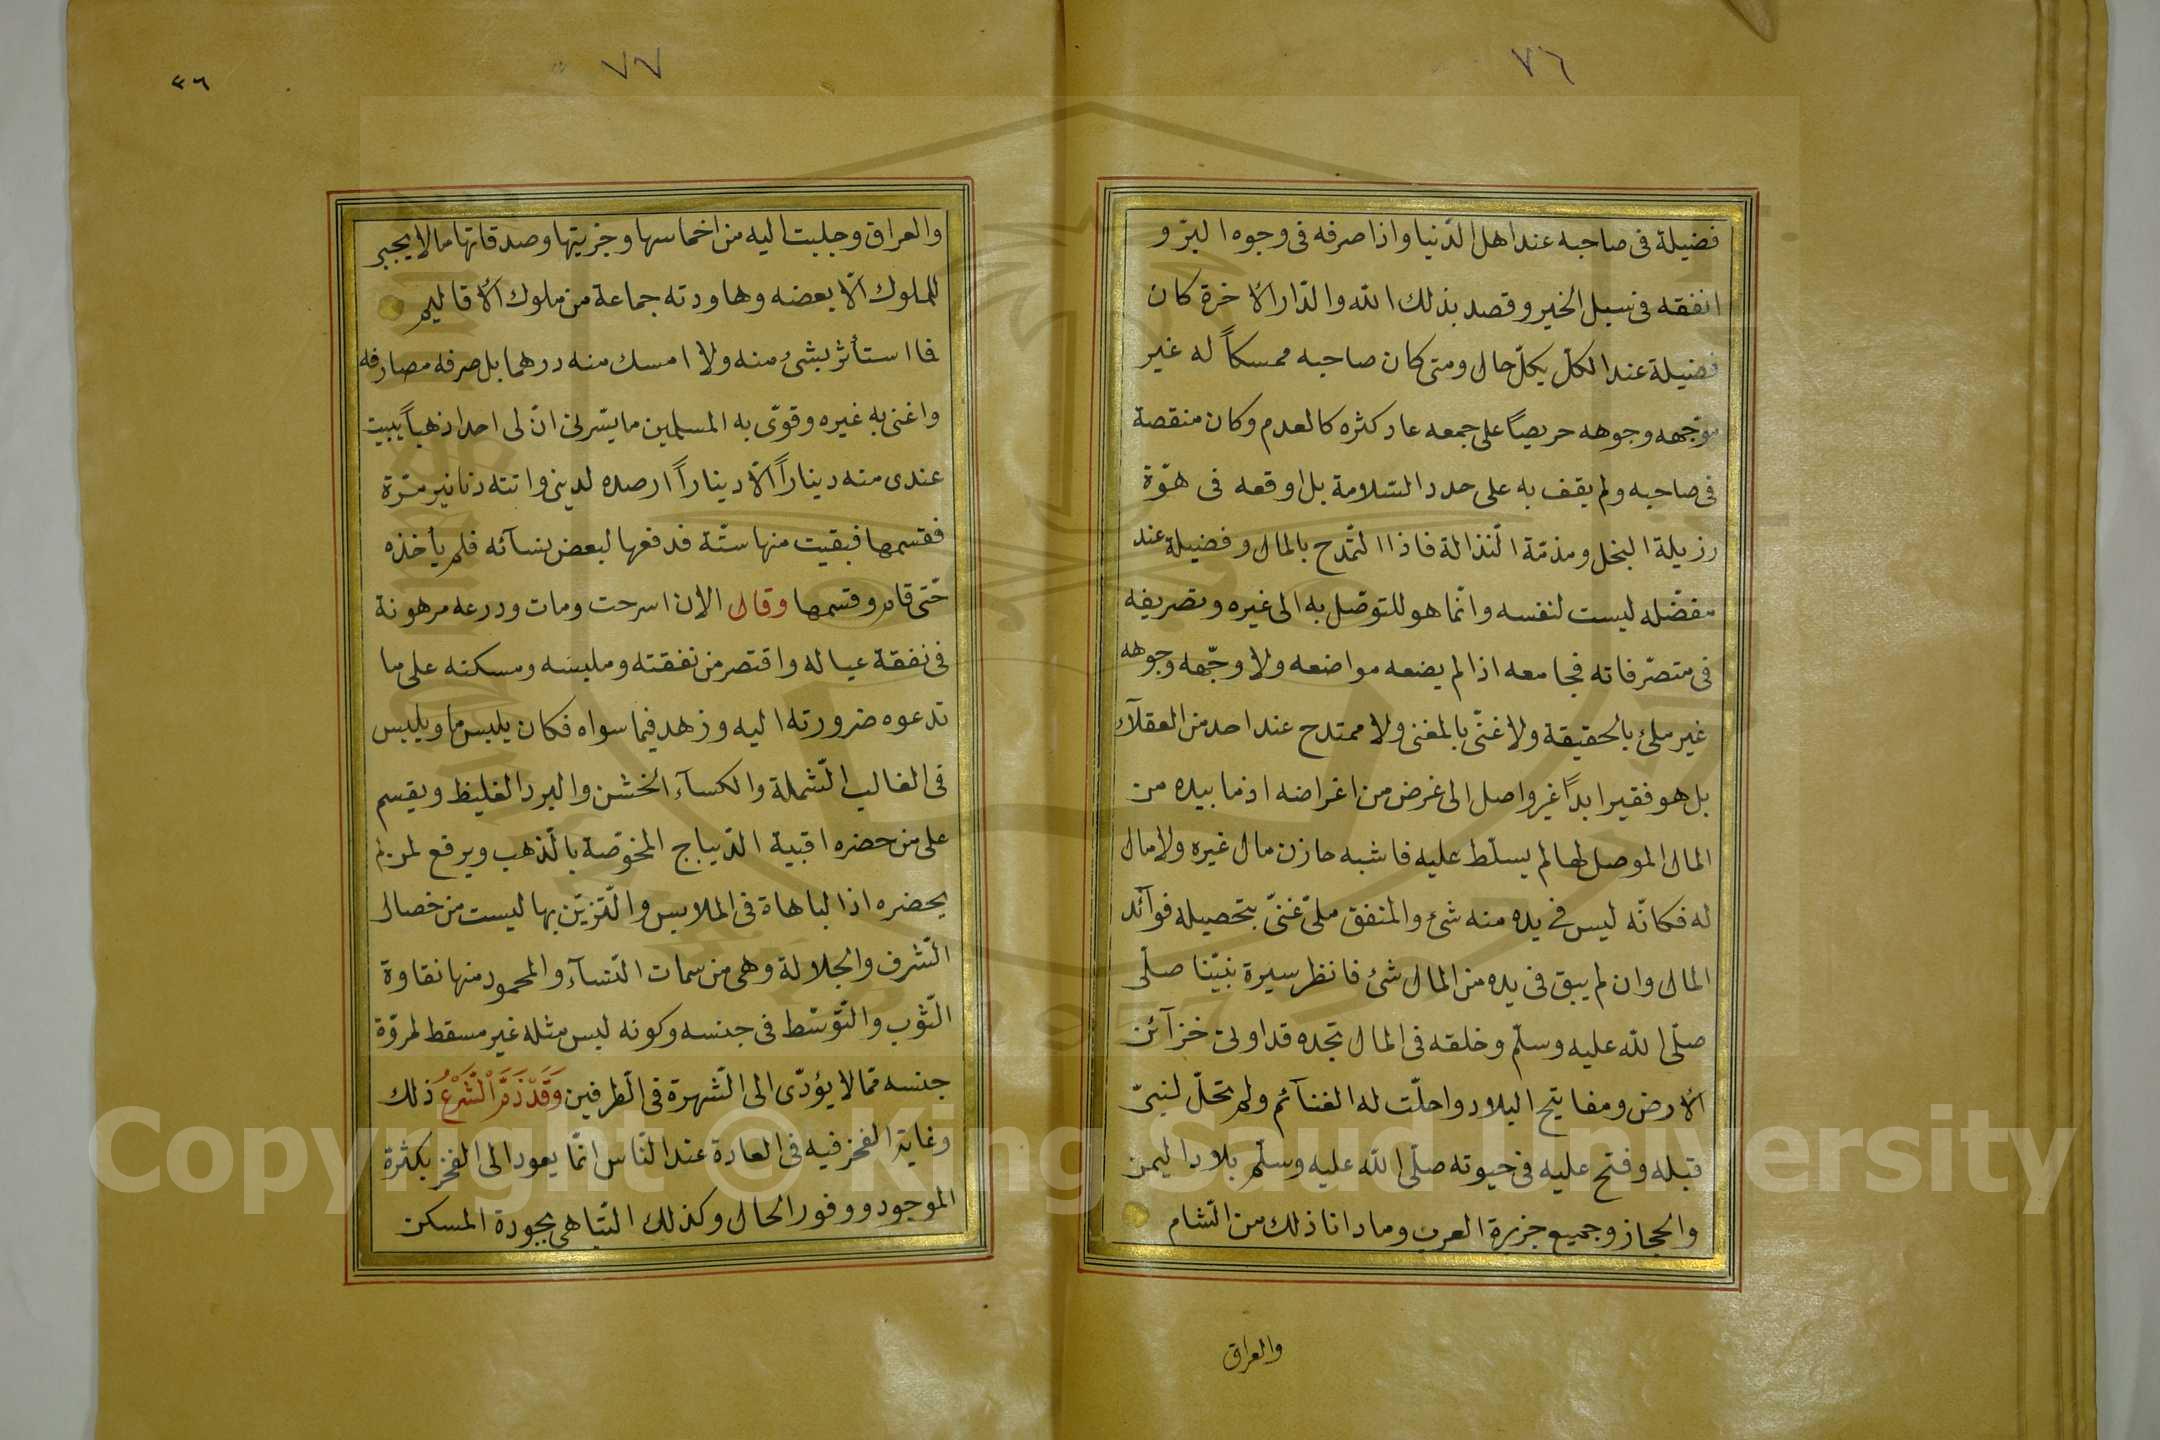 ٧٦
فضيلة فى صاحبه عند اهل الدّنيا واذا صرفه فى وجوه البرّ و
انفقه فى سبيل الخير وقصد بذلك الله والدّار الآخرة كان
فضيلة عند الكلّ بكلّ حال ومتى كان صاحبه ممسكاً له غير
موّجهه وجوهه حريصًا على جمعه عاد كثره كالعدم وكان منقصة
فى صاحبه ولم يقف به على حدد السّلامة بل اوقعه فى هوّة
رزيلة البخل ومذمّة النّذالة فاذا التّمدح بالمال وفضيلة عند
مفضّله ليست لنفسه وانّما هو للتوصّل به الى غيره وتصريفه
فى متصرّفاته فجامعه اذا لم يضعه مواضعه ولا وجّهه وجوهه
غير ملئ بالحقيقة ولا غنّى بالمغنى ولا ممتدح عند احد من العقلآء
بل هو فقير ابداً غير واصل الى غرض من اغراضه اذ ما بيده من
المال الموصل لها لم يسلّط عليه فاشبه حازن مال غيره ولا مال
له فكانّه ليس فى يده منه شئ والمنفق ملىّ غنىّ بتحصيله فوآئد
المال وان لم يبق فى يده من المال شئ فانظر سيرة نبيّنا صلّى
صلّى الله عليه وسلّم وخلقه فى المال تجده قد اوتى خزآئن
الارض ومفاتيح البلاد واحلّت له الغنآئم ولم تحلّ لنبىّ
قبله وفتح عليه فى حيوته صلّى الله عليه وسلّم بلاد اليمن
والحجاز وجميع جزيرة العرب وما دانا ذلك من الشّام
والعراق
٧٧
٣٦
والعراق وجلبت اليه من اخماسها وجزيتها وصدقاتها ما لا يجبى
للملوك الّا بعضه وهاودته جماعة من ملوك الاقاليم
فما استأثر بشئ منه ولا امسك منه درهما بل صرفه مصارفه
واغنى به غيره وقوّى به المسلمين ما يسّرنى انّ لى احدا ذهباً يبيت
عندى منه ديناراً الّا ديناراً ارصده لدينى واتته دنانير مرّة
فقسمها فبقيت منها ستّة فدفعها لبعض نسآئه فلم يأخذه
حتّى قام وقسمها وقال الان اسرحت ومات ودرعه مرهونة
فى نفقة عياله واقتصر من نفقته وملبسه ومسكنه على ما
تدعوه ضرورته اليه وزهد فيما سواه فكان يلبس ما ويلبس
فى الغالب الشّملة والكسآء الخشن والبرد الغليظ ويقسم
على من حضره اقبية الدّيباج المخوّصة بالذّهب ويرفع لمن لم
يحضره اذ المباهاة فى الملابس والتّزيّن بها ليست من خصال
الشّرف والجلالة وهى من سمات النّسآء والمحمود منها نقاوة
الثّوب والتّوسّط فى جنسه وكونه لبس مثله غير مسقط لمروّة
جنسه ممّا لا يؤدّى الى الشّهرة فى الطّرفين وَقَدْ ذَمَّ الشَّرْعُ ذلك
وغاية الفخر فيه فى العادة عند النّاس انّما يعود الى الفخر بكثرة
الموجود ووفور الحال وكذلك التّباهى بجودة المسكن
Copyright © King Saud University